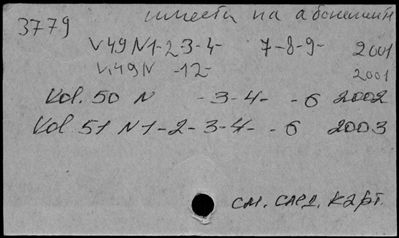 3779
на абонемент
V49 N1-2-3-4- 7-8-9- 2001
V.49 N -12- 2001
Vol. 50 N -3-4- -6 2002
Vol 51 N 1-2-3-4- -6 2003
см. след. карт.